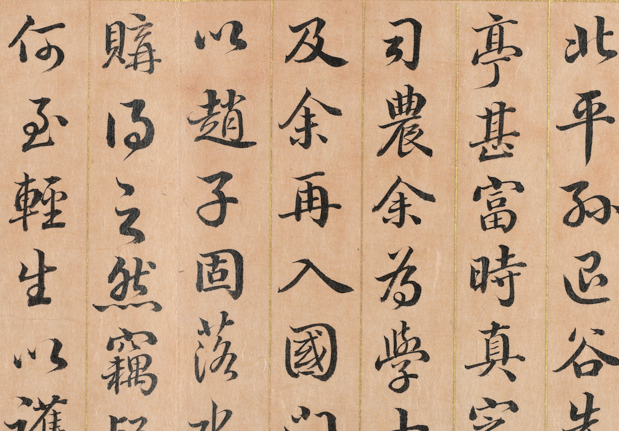 北平孫退谷
亭甚富時真
司農余為學
及余再入國
以趙子固落
購得之然竊
何至輕生以